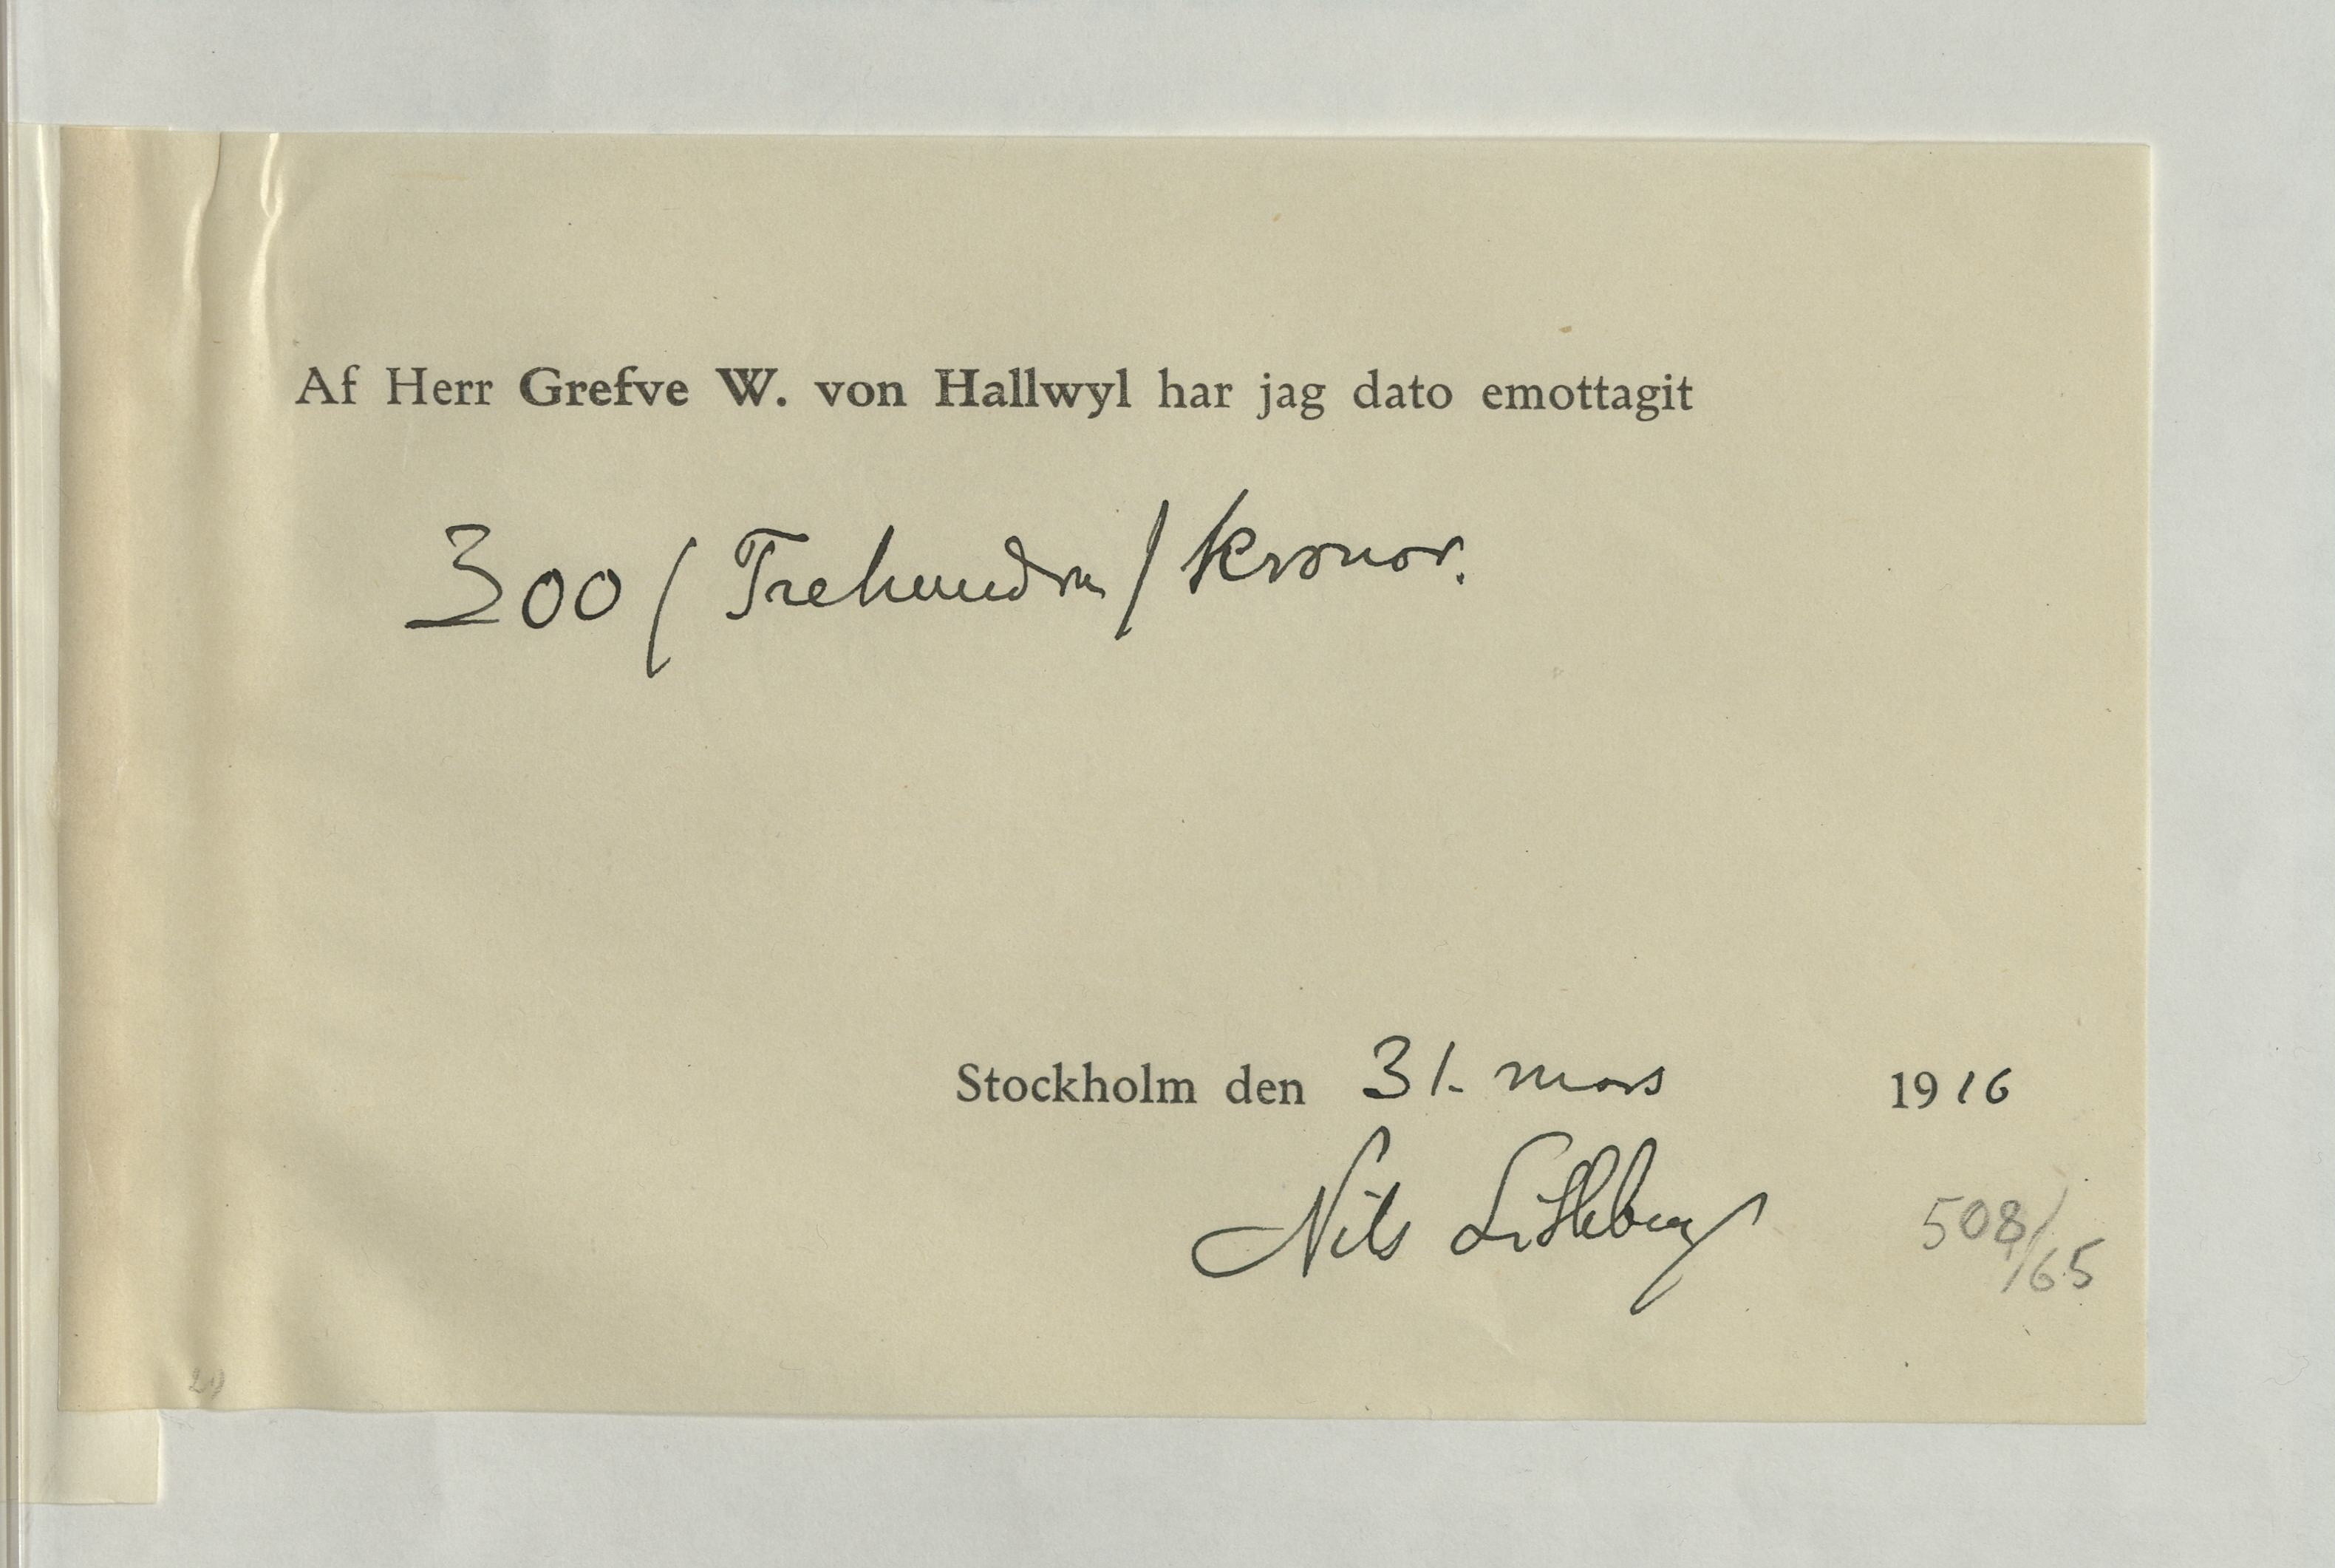 Af Herr Grefve W. von Hallwyl har jag dato emottagit
300 / Trehundra / Kronor.
Stockholm den 31. mars 1916
Nils
508/65